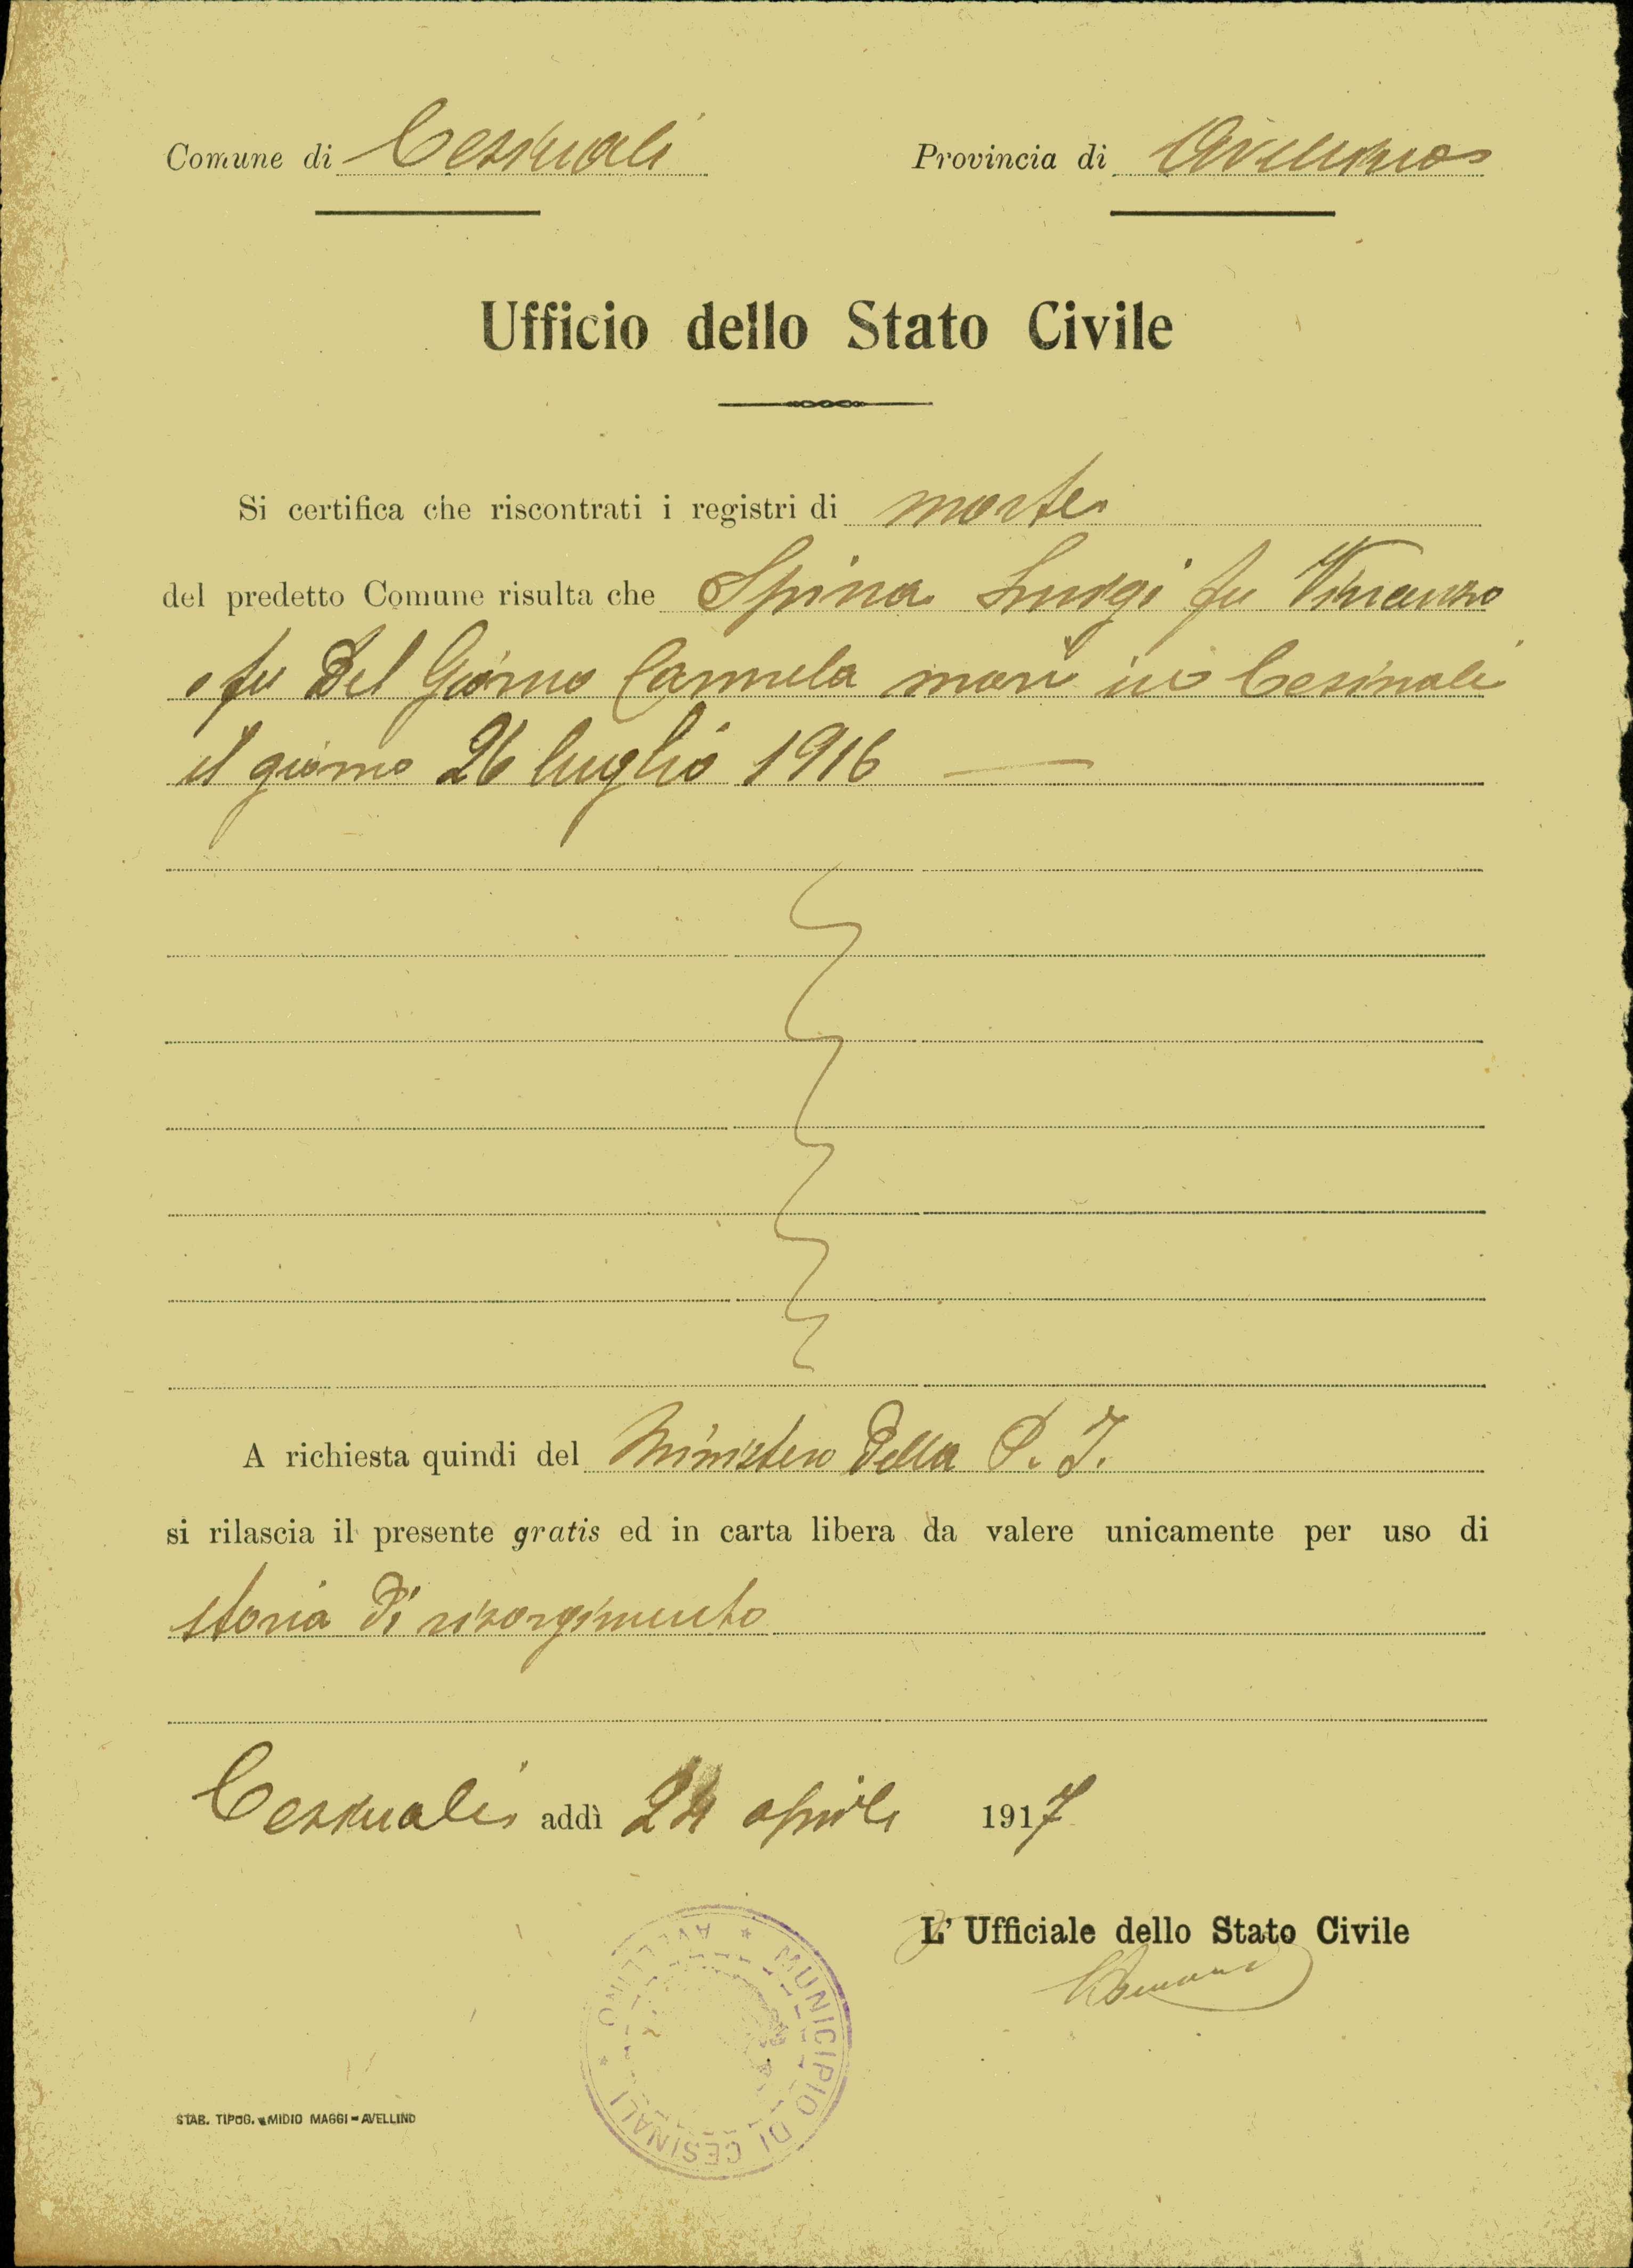 Comune di Cesinali Provincia di Avellino
Ufficio dello Stato Civile
Si certifica che riscontrati i registri di morte
del predetto Comune risulta che Spina Luigi fu Vincenzo
e fu Del Giorno Carmela morì in Cesinali
il giorno 26 luglio 1916
A richiesta quindi del Ministero della P. I.
si rilascia il presente gratis ed in carta libera da valere unicamente per uso di
storia di risorgimento
Cesinali addì 24 aprile 1917
L' Ufficiale dello Stato Civile
MUNICIPIO DI CESINALI * AVELLINO *
STAB. TIPOG. EMIDIO MAGGI - AVELLINO